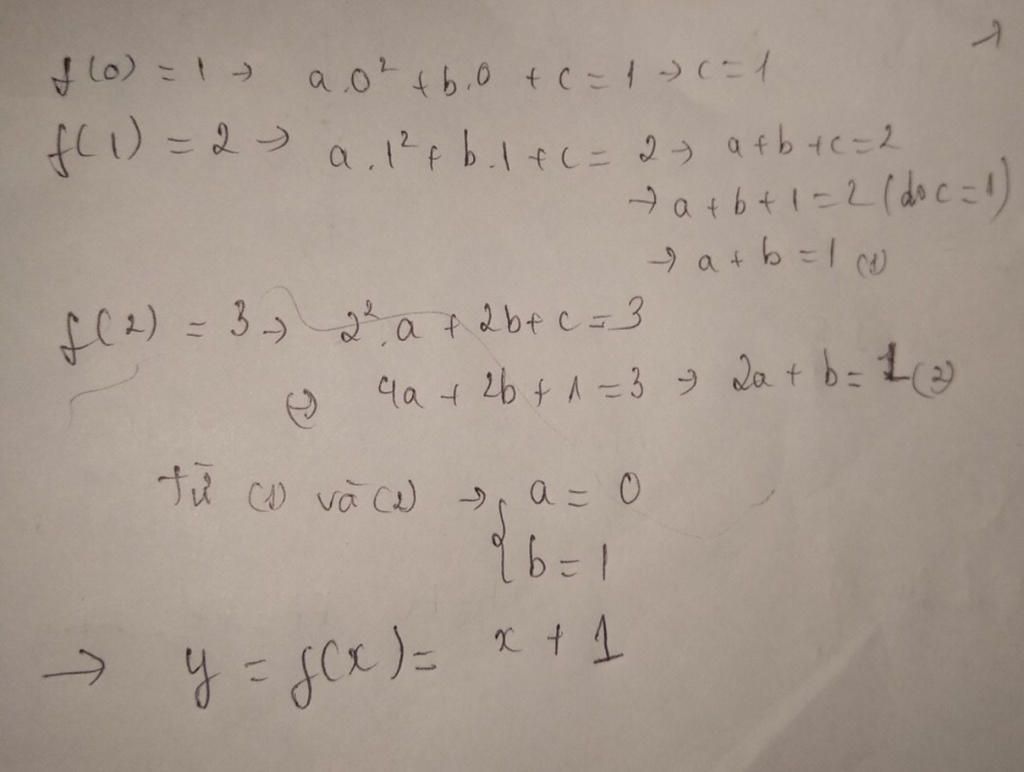 f(0) = 1 → a.0² + b.0 + c = 1 → c = 1
f(1) = 2 → a.1² + b.1 + c = 2 → a + b + c = 2
→ a + b + 1 = 2 (do c = 1)
→ a + b = 1 (1)
f(2) = 3 → 2².a + 2b + c = 3
⇔ 4a + 2b + 1 = 3 → 2a + b = 1 (2)
từ (1) và (2) → { a = 0
b = 1
→ y = f(x) = x + 1